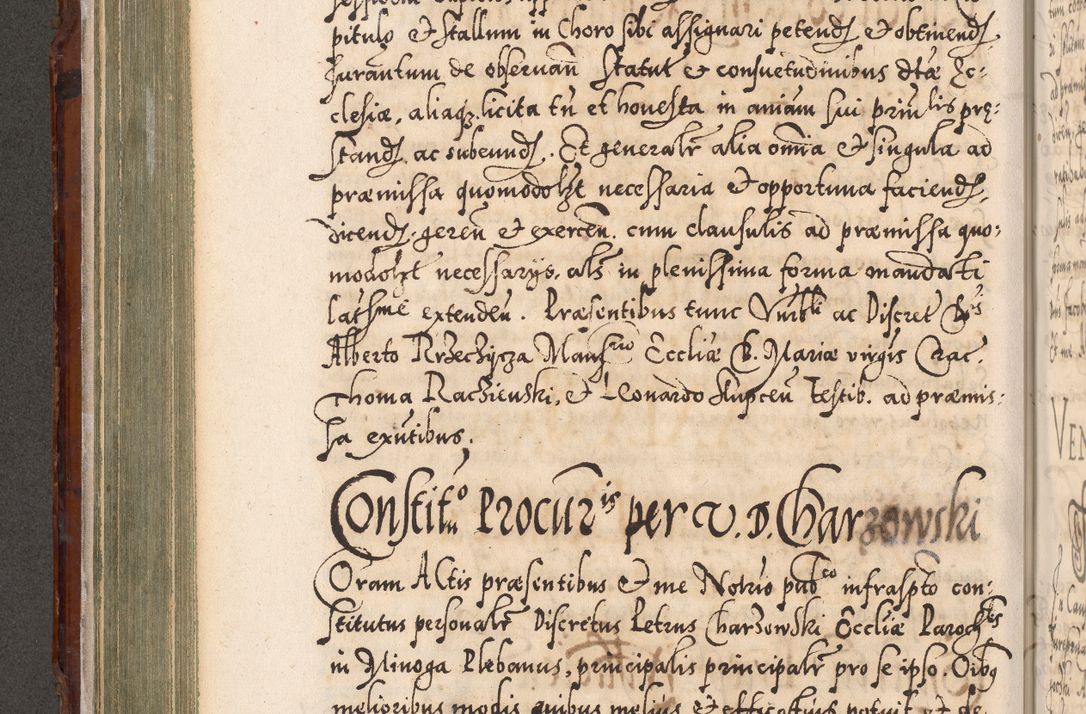 pitulo et stallum in Choro sibi assignari petend et obtinend
Jurandum de observan Statut et consuetudinibus dtae Ec-
clesiae, aliaq licita tn et honesta in aniam sui prin lis prę-
stand ac subeund. Et generalr alia omnia et singula ad
praemissa quomodolzt necessaria et opportuna faciend,
dicend, geren et exercen. cum clausulis ad praemissa quo-
modolzt necessarys, als in plenissima forma mandati
latsme extenden. Praesentibus tunc ac Discret
Alberto Rzechycza Mans rio Eccliae B. Mariae virgis Crac.
Thoma Raczienski, et Leonardo Kupcen Testib. ad praemis-
sa exntibus.
Constit:o Procur is per V. D. Charzowski
Coram Actis praesentibus et me Notrio pub co infraspto con-
stitutus personalr Discretus Petrus Charzowski Eccliae Paroch
in Minoga Plebanus, principalis principalr pro se ipso. Oibq
melioribus modis quibus melius et efficacius potuit et de-